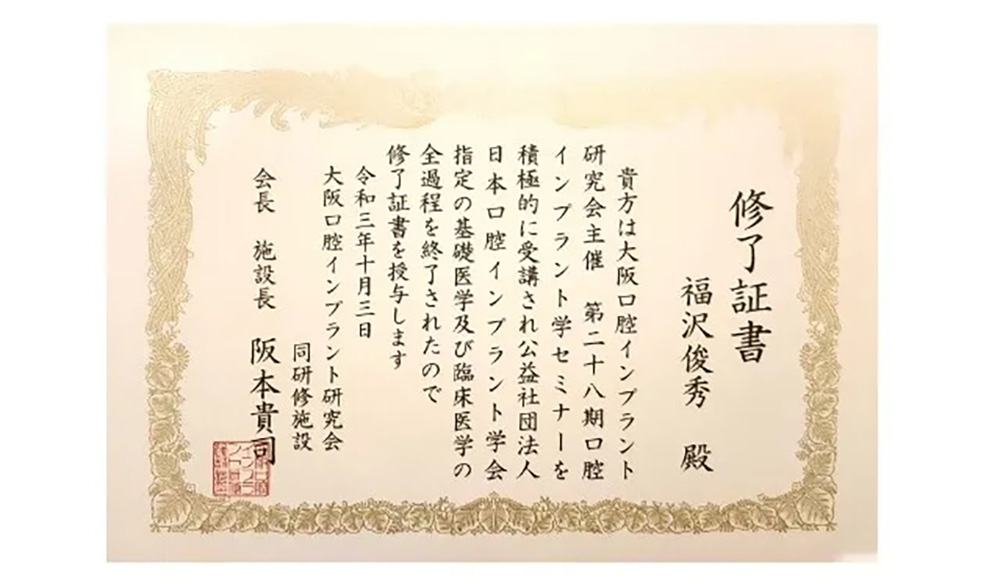 修了証書
福沢俊秀 殿
貴方は大阪口腔インプラント
研究会主催 第二十八期口腔
インプラント学セミナーを
積極的に受講され公益社団法人
日本口腔インプラント学会
指定の基礎医学及び臨床医学の
全過程を終了されたので
修了証書を授与します
令和三年十月三日
大阪口腔インプラント研究会
同研修施設
会長 施設長 阪本貴司